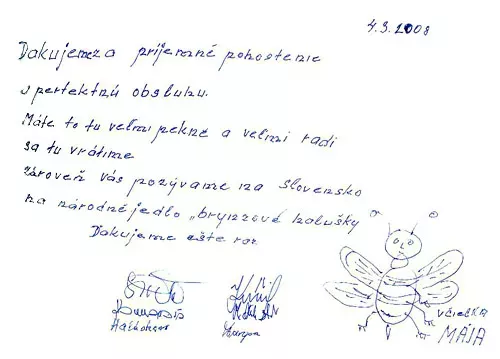 4.3.2008
Ďakujemza príjemné pohostenie
s perfektnú obsluhu.
Máte to tu veľmi pekné a veľmi radi
sa tu vrátime
Zároveň Vás pozývame na Slovensko
na národné jedlo „brynzové halušky
Ďakujeme ešte raz
včielka
MÁJA